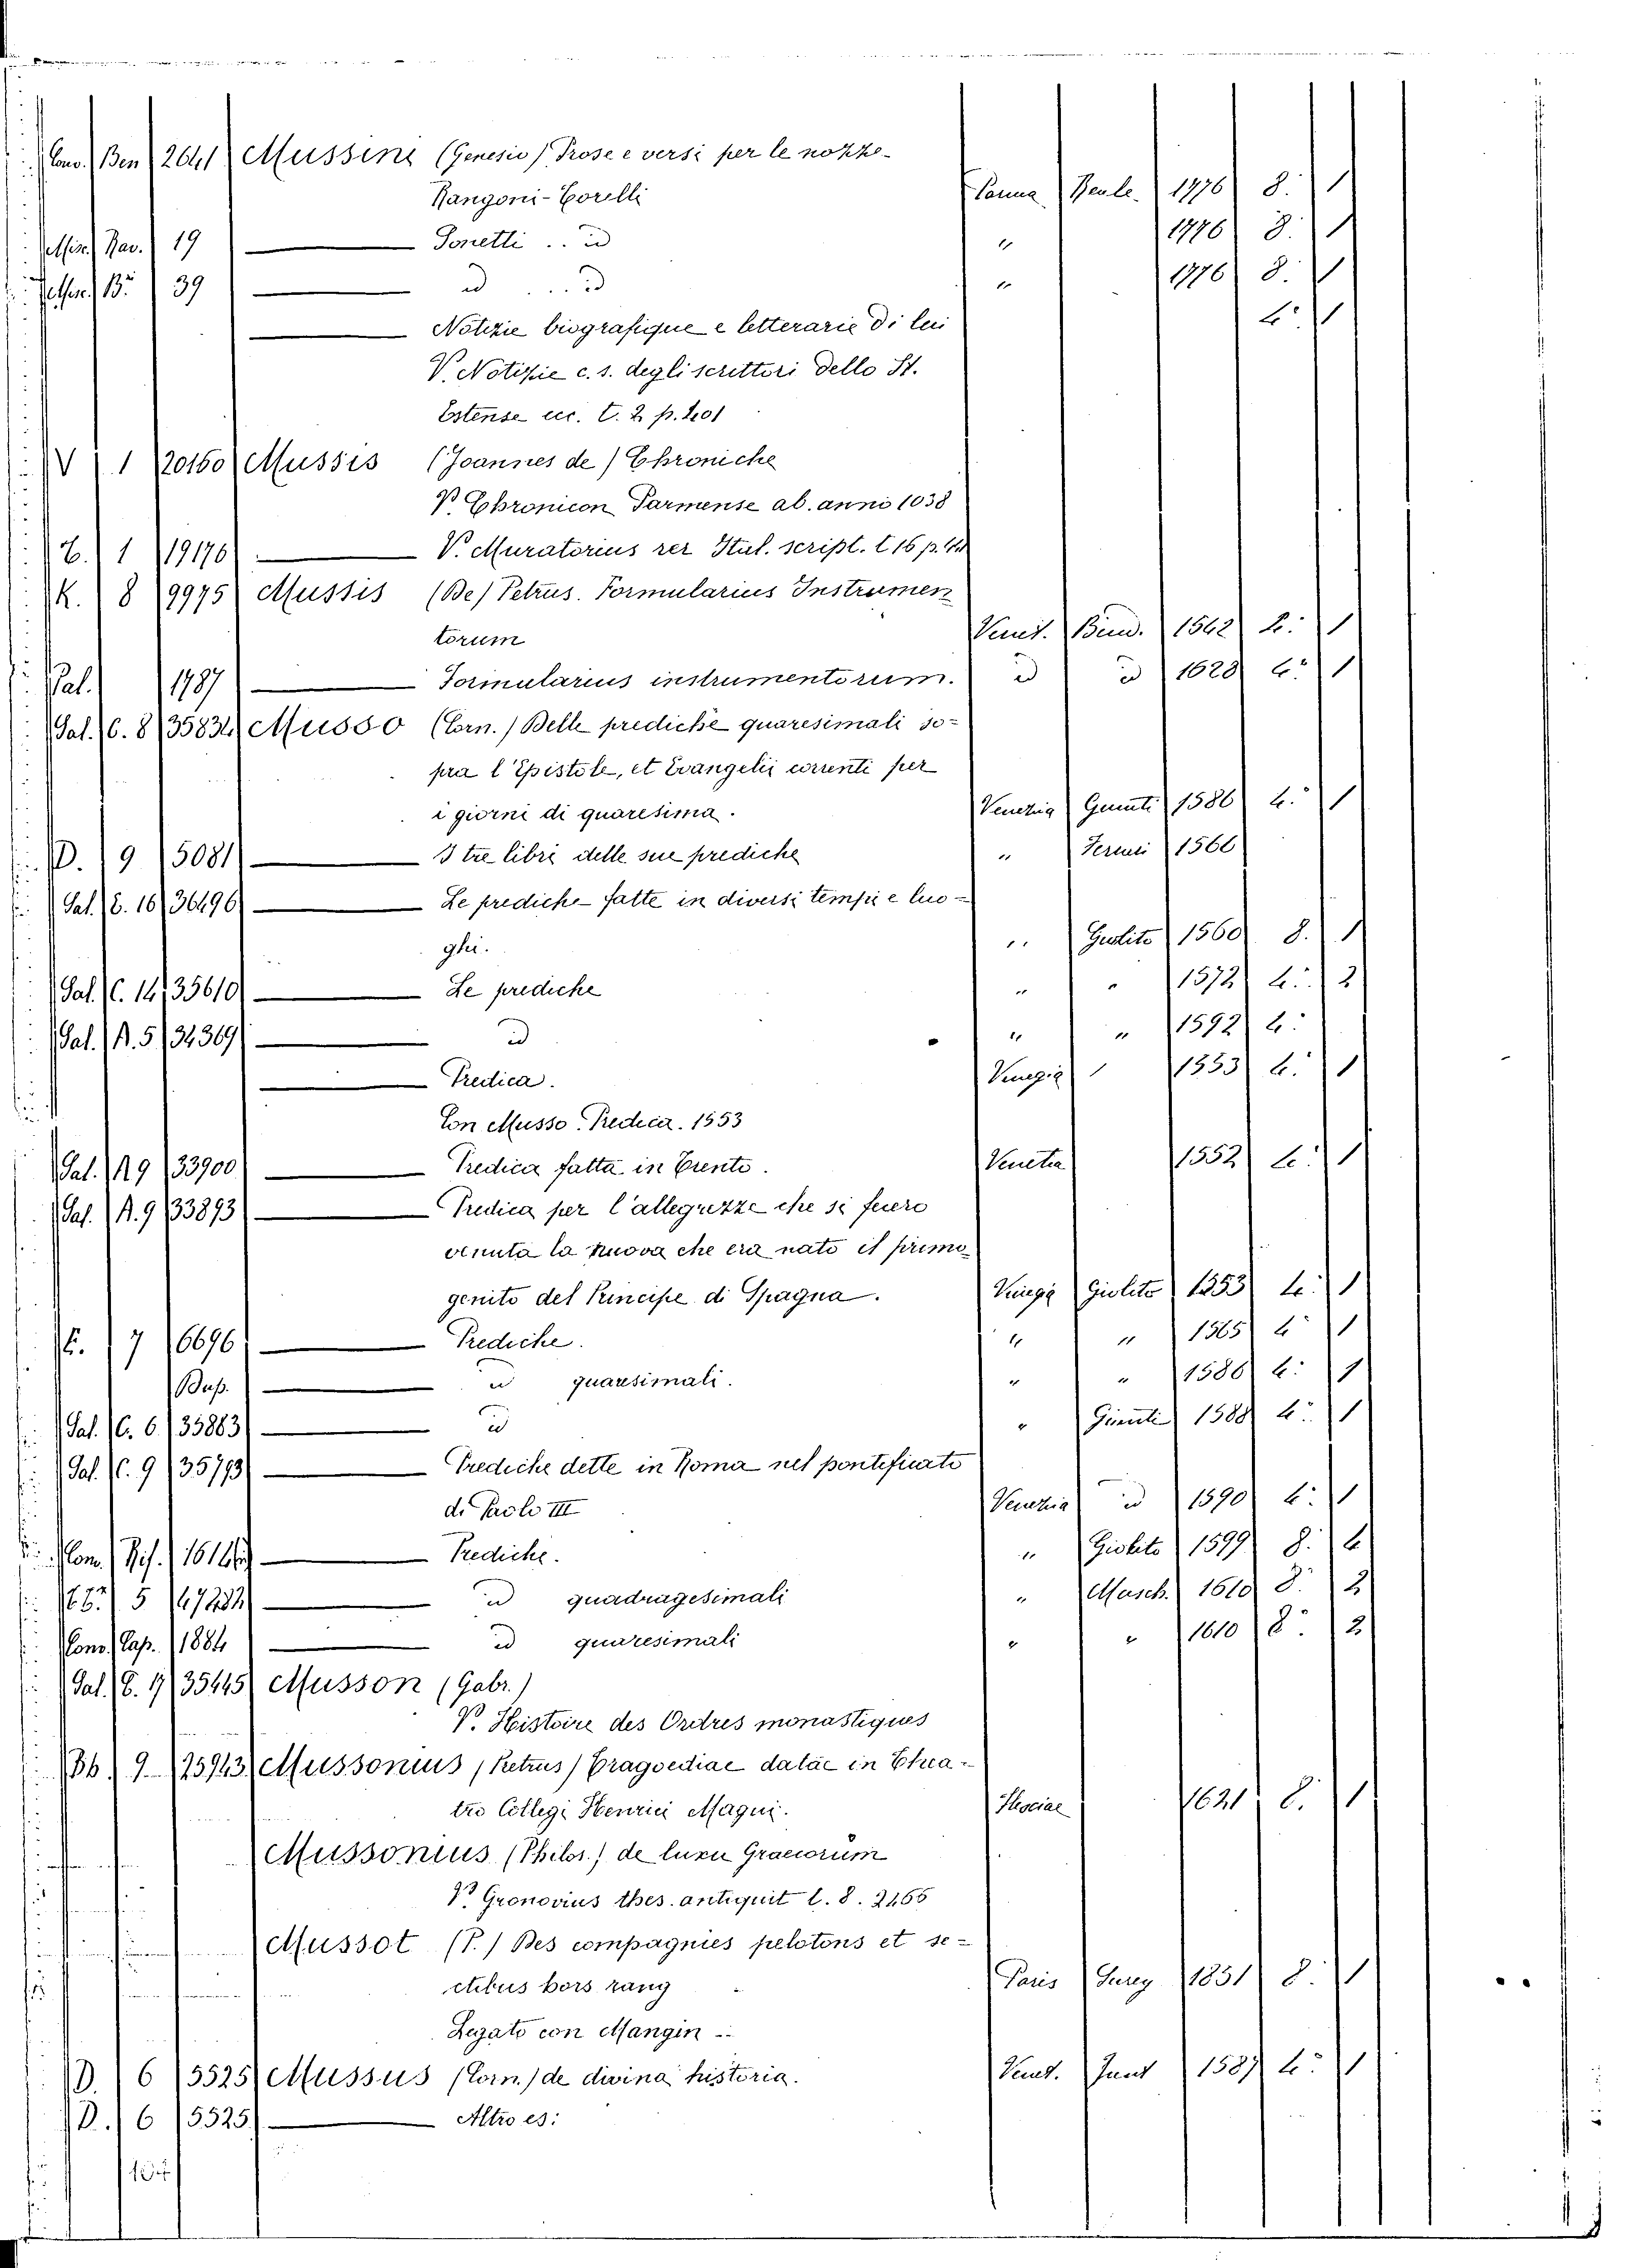 Conv. Ben 2641 Mussini (Genesio) Prose e versi per le nozze
Rangoni-Corelli Parma Reale. 1776 8. 1
Rav. 19 — Sonetti .. id " 1776 8. 1
39 — id ... id " 1776 8. 1
— Notizie biografique e letterarie di lui 4° 1
V. Notizie c. s. degli scrittori dello St.
Estense ecc. t. 2 p. 401
V 1 20160 Mussis (Joannes de) Chroniche
V. Chronicon Parmense ab. anni 1038
1 19176 — V. Muratorius rer Ital. script. t 16 p. 44
K. 8 9975 Mussis (De) Petrus. Formularius Instrumen
torum Venet. Bind. 1562 4. 1
Pal. 1787 — Formularius instrumentorum. id id 1628 4° 1
Sal. C. 8 35834 Musso (Corn.) Delle prediche quaresimali so=
pra l'Epistole, et Evangelii correnti per
i giorni di quaresima. Venezia Giunti 1586 4. 1
D. 9 5081 — I tre libri delle sue prediche " 1566
Sal. 16 36496 — Le prediche fatte in diversi tempi e luo=
ghi. " Giolito 1560 8. 1
Sal. C. 14 35610 — Le prediche " " 1572 4. 2
Sal. A. 5 34369 — id " " 1592 4.
— Predica. Venezia " 1553 4. 1
Con Musso. Predica. 1553
Sal. A 9 33900 — Predica fatta in Trento. Venetia 1552 4. 1
Sal. A. 9 33893 — Predica per l'allegrezze che si fecero
venuta la nuova che era nato il primo
genito del Principe di Spagna. Vinegia Giolito 1553 4. 1
7 6696 — Prediche. " " 1565 4 1
Dup. — id quaresimali. " " 1586 4. 1
Sal. C. 6 35883 — id " Giunti 1588 4. 1
Sal. C. 9 35793 — Prediche dette in Roma nel pontificato
di Paolo III Venezia id 1590 4. 1
Rif. — Prediche. " Giolito 1599 8. 4
5 — id quadragesimali " Musch. 1610 8. 2
Conv. Cap. 1884 — id quaresimali " " 1610 8. 2
Sal. 35445 Musson (Gabr.)
V. Histoire des Ordres monastiques
Bb. 9 Mussonius (Petrus) Tragoediae datae in Thea-
tro Collegi Henrici Magni. 1621 8. 1
Mussonius (Philos.) de luxu Graecorum
V. Gronovius thes. antiquit t. 8. 2465
Mussot (P.) Des compagnies pelotons et se=
ctibus hors rang Paris 1831 8. 1
Legato con Mangin ..
D. 6 5525 Mussus (Corn.) de divina historia. Venet. Junt 1587 4° 1
D. 6 5525 — Altro es: